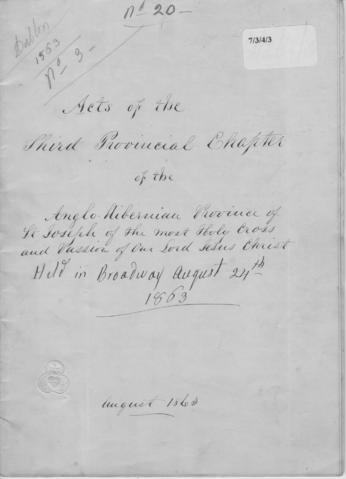 No 20-
7/3/4/3
Dublin
1863
No 3-
Acts of the
Third Provincial Chapter
of the
Anglo-Hibernian Province of
St Joseph of the most Holy Cross
and Passion of Our Lord Jesus Christ
Held in Broadway August 24th
1863
August 1863